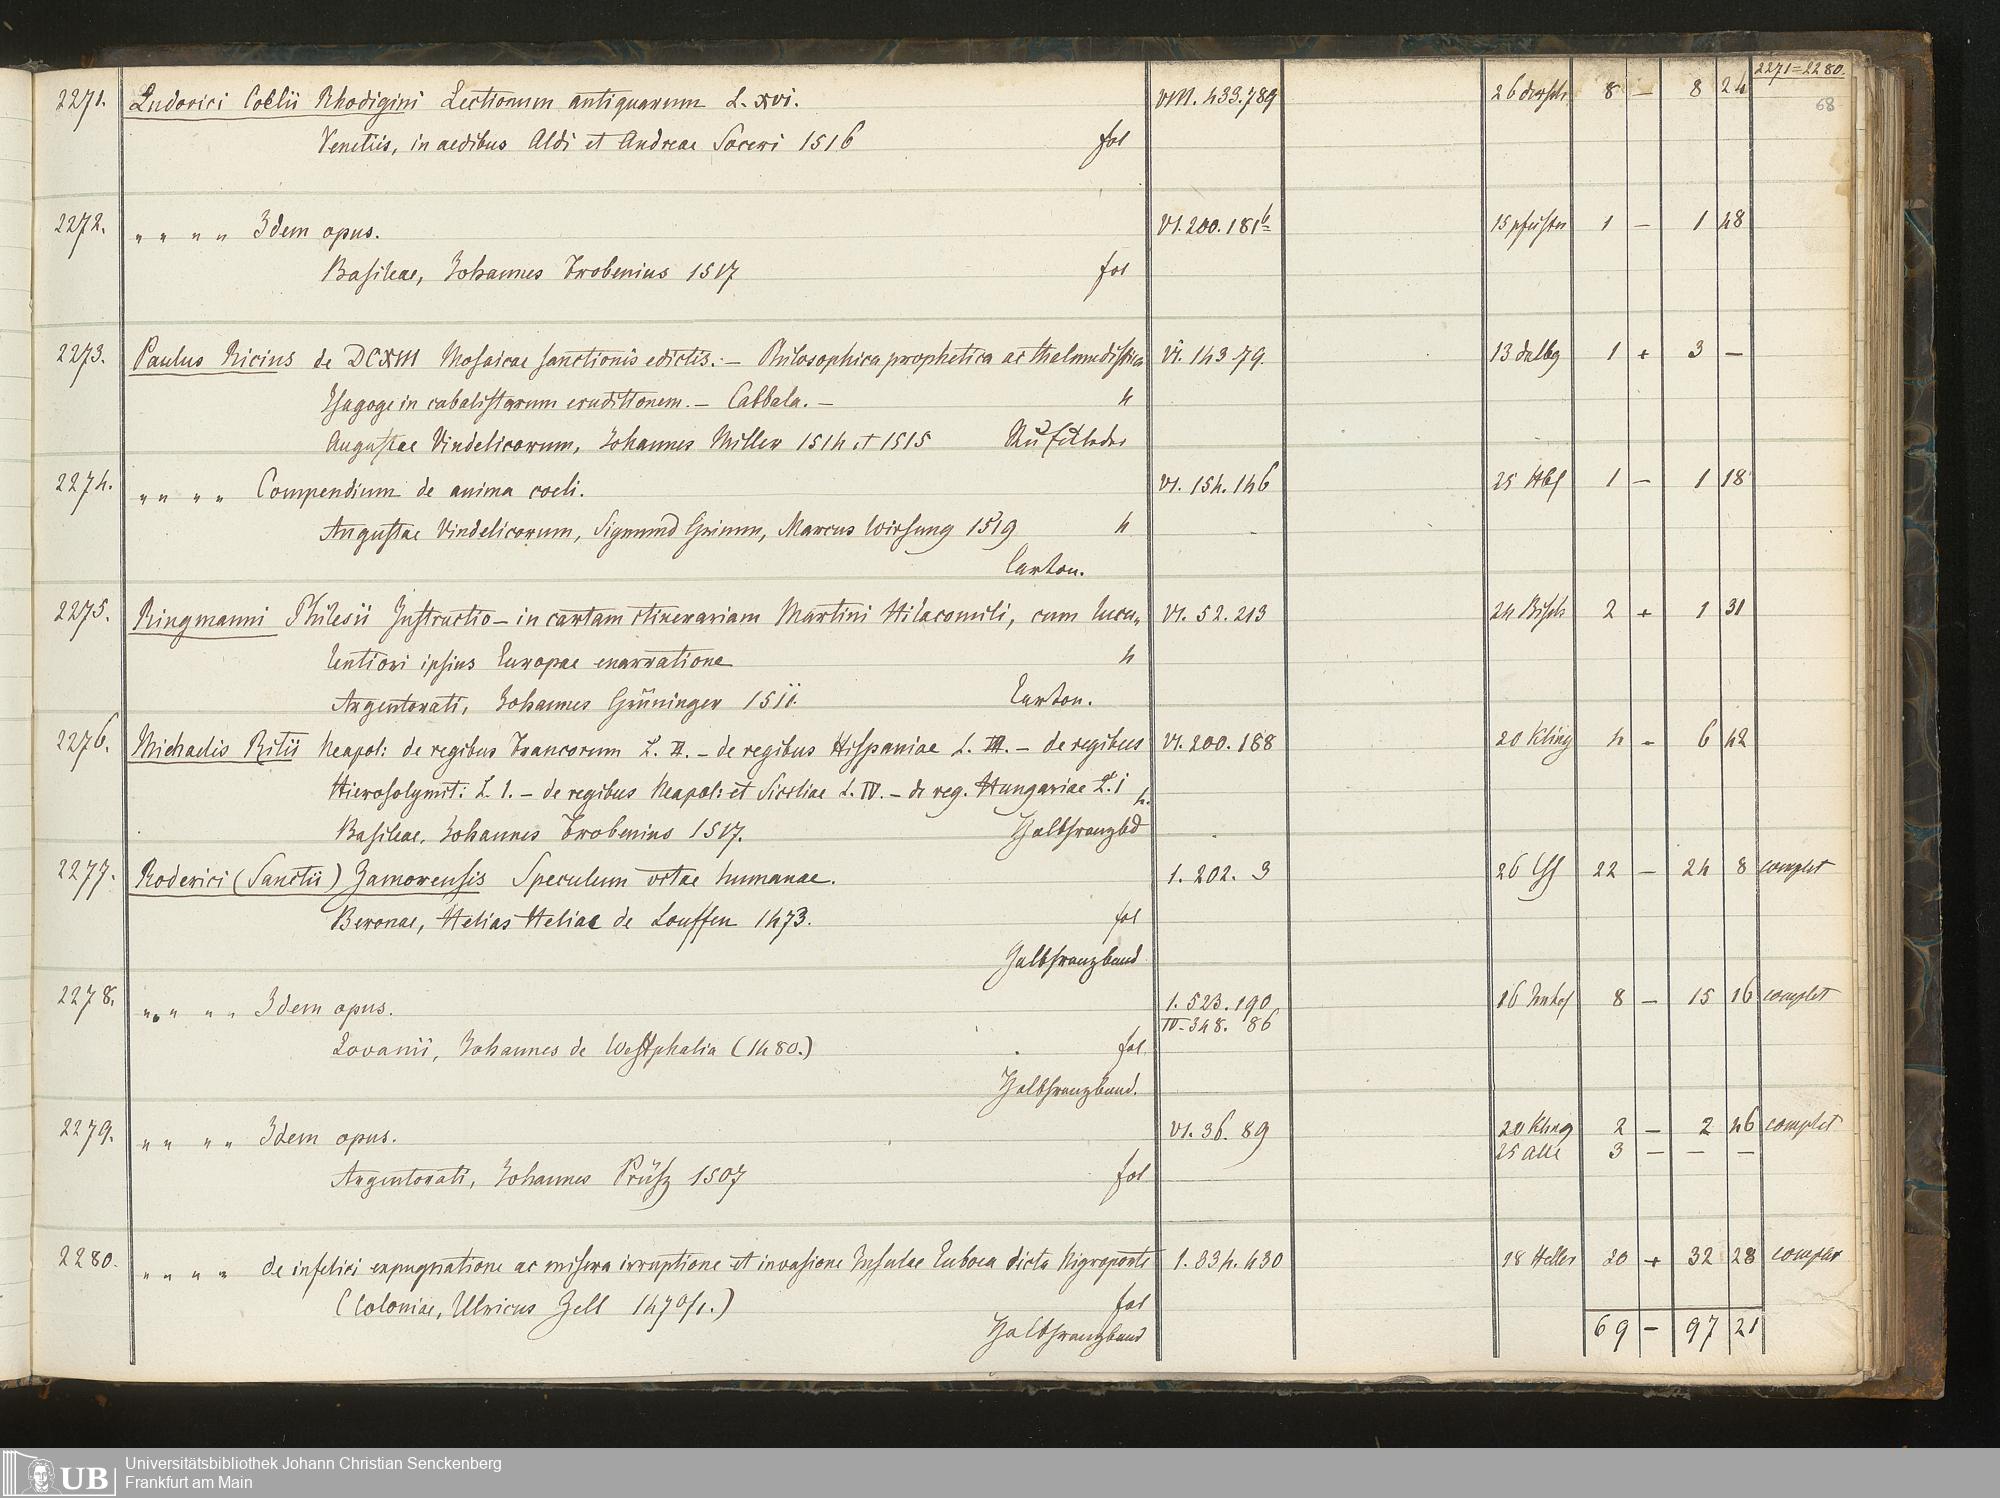 2271=2280.
68
2271. Ludovici Coelii Rhodigini Lectionum antiquarum L. xvi. VIII. 433.789 8 — 8 24
Venetiis, in aedibus Aldi et Andreae Soceri 1516 fol
2272. " " " " Idem opus. VI. 200. 181b 15 1 — 1 48
Basileae, Johannes Frobenius 1517 fol
2273. Paulus Ricius de DCXIII Mosaicae sanctionis edictis. — Philosophica prophetica ac thalmudistica VI. 143.79. 13 dalbg 1 + 3 —
Isagoge in cabalistarum eruditionem. — Cabbala. — 4
Augustae Vindelicorum, Johannes Miller 1514 et 1515
2274. " " " " Compendium de anima coeli. VI. 154. 146 25 1 — 1 18
Augustae Vindelicorum, Sigmund Grimm, Marcus Wirsung 1519 4
Carton.
2275. Ringmanni Philesii Instructio — in cartam itinerariam Martini Hilacomili, cum lucu„ VI. 52. 213 24 Bisch 2 + 1 31
lentiori ipsius Europae enarratione 4
Argentorati, Johannes Grüninger 1511. Carton.
2276. Michaelis Ritii Neapol: de regibus Francorum L. III. — de regibus Hispaniae L. III. — de regibus VI. 200. 188 20 Kling 4 — 6 42
Hierosolymit: L. 1. — de regibus Neapol: et Siciliae L. IV. — de reg. Hungariae L. i 4.
Basileae, Johannes Frobenius 1517. Halbfranzbd
2277. Roderici (Sanctii) Zamorensis Speculum vitae humanae. 1. 202. 3 26 22 — 24 8 complet
Beronae, Helias Heliae de Louffen 1473. fol
Halbfranzband
2278. " " " " Idem opus. 1. 523. 190 16 8 — 15 16 complet
IV. 348. 86
Lovanii, Johannes de Westphalia (1480.) fol
Halbfranzband.
2279. " " " " Idem opus. VI. 36. 89 20 Kling 2 — 2 46 complet
25 alle 3 — — —
Argentorati, Johannes Prüsz 1507 fol
2280. " " " " de infelici expugnatione ac misera irruptione et invasione Insulae Euboea dicta Nigroponte 1. 334. 430 18 Heller 20 + 32 28 complet
(Coloniae, Ulricus Zell 1470/1.) fol
Halbfranzband
69 — 97 21
UB
Universitätsbibliothek Johann Christian Senckenberg
Frankfurt am Main